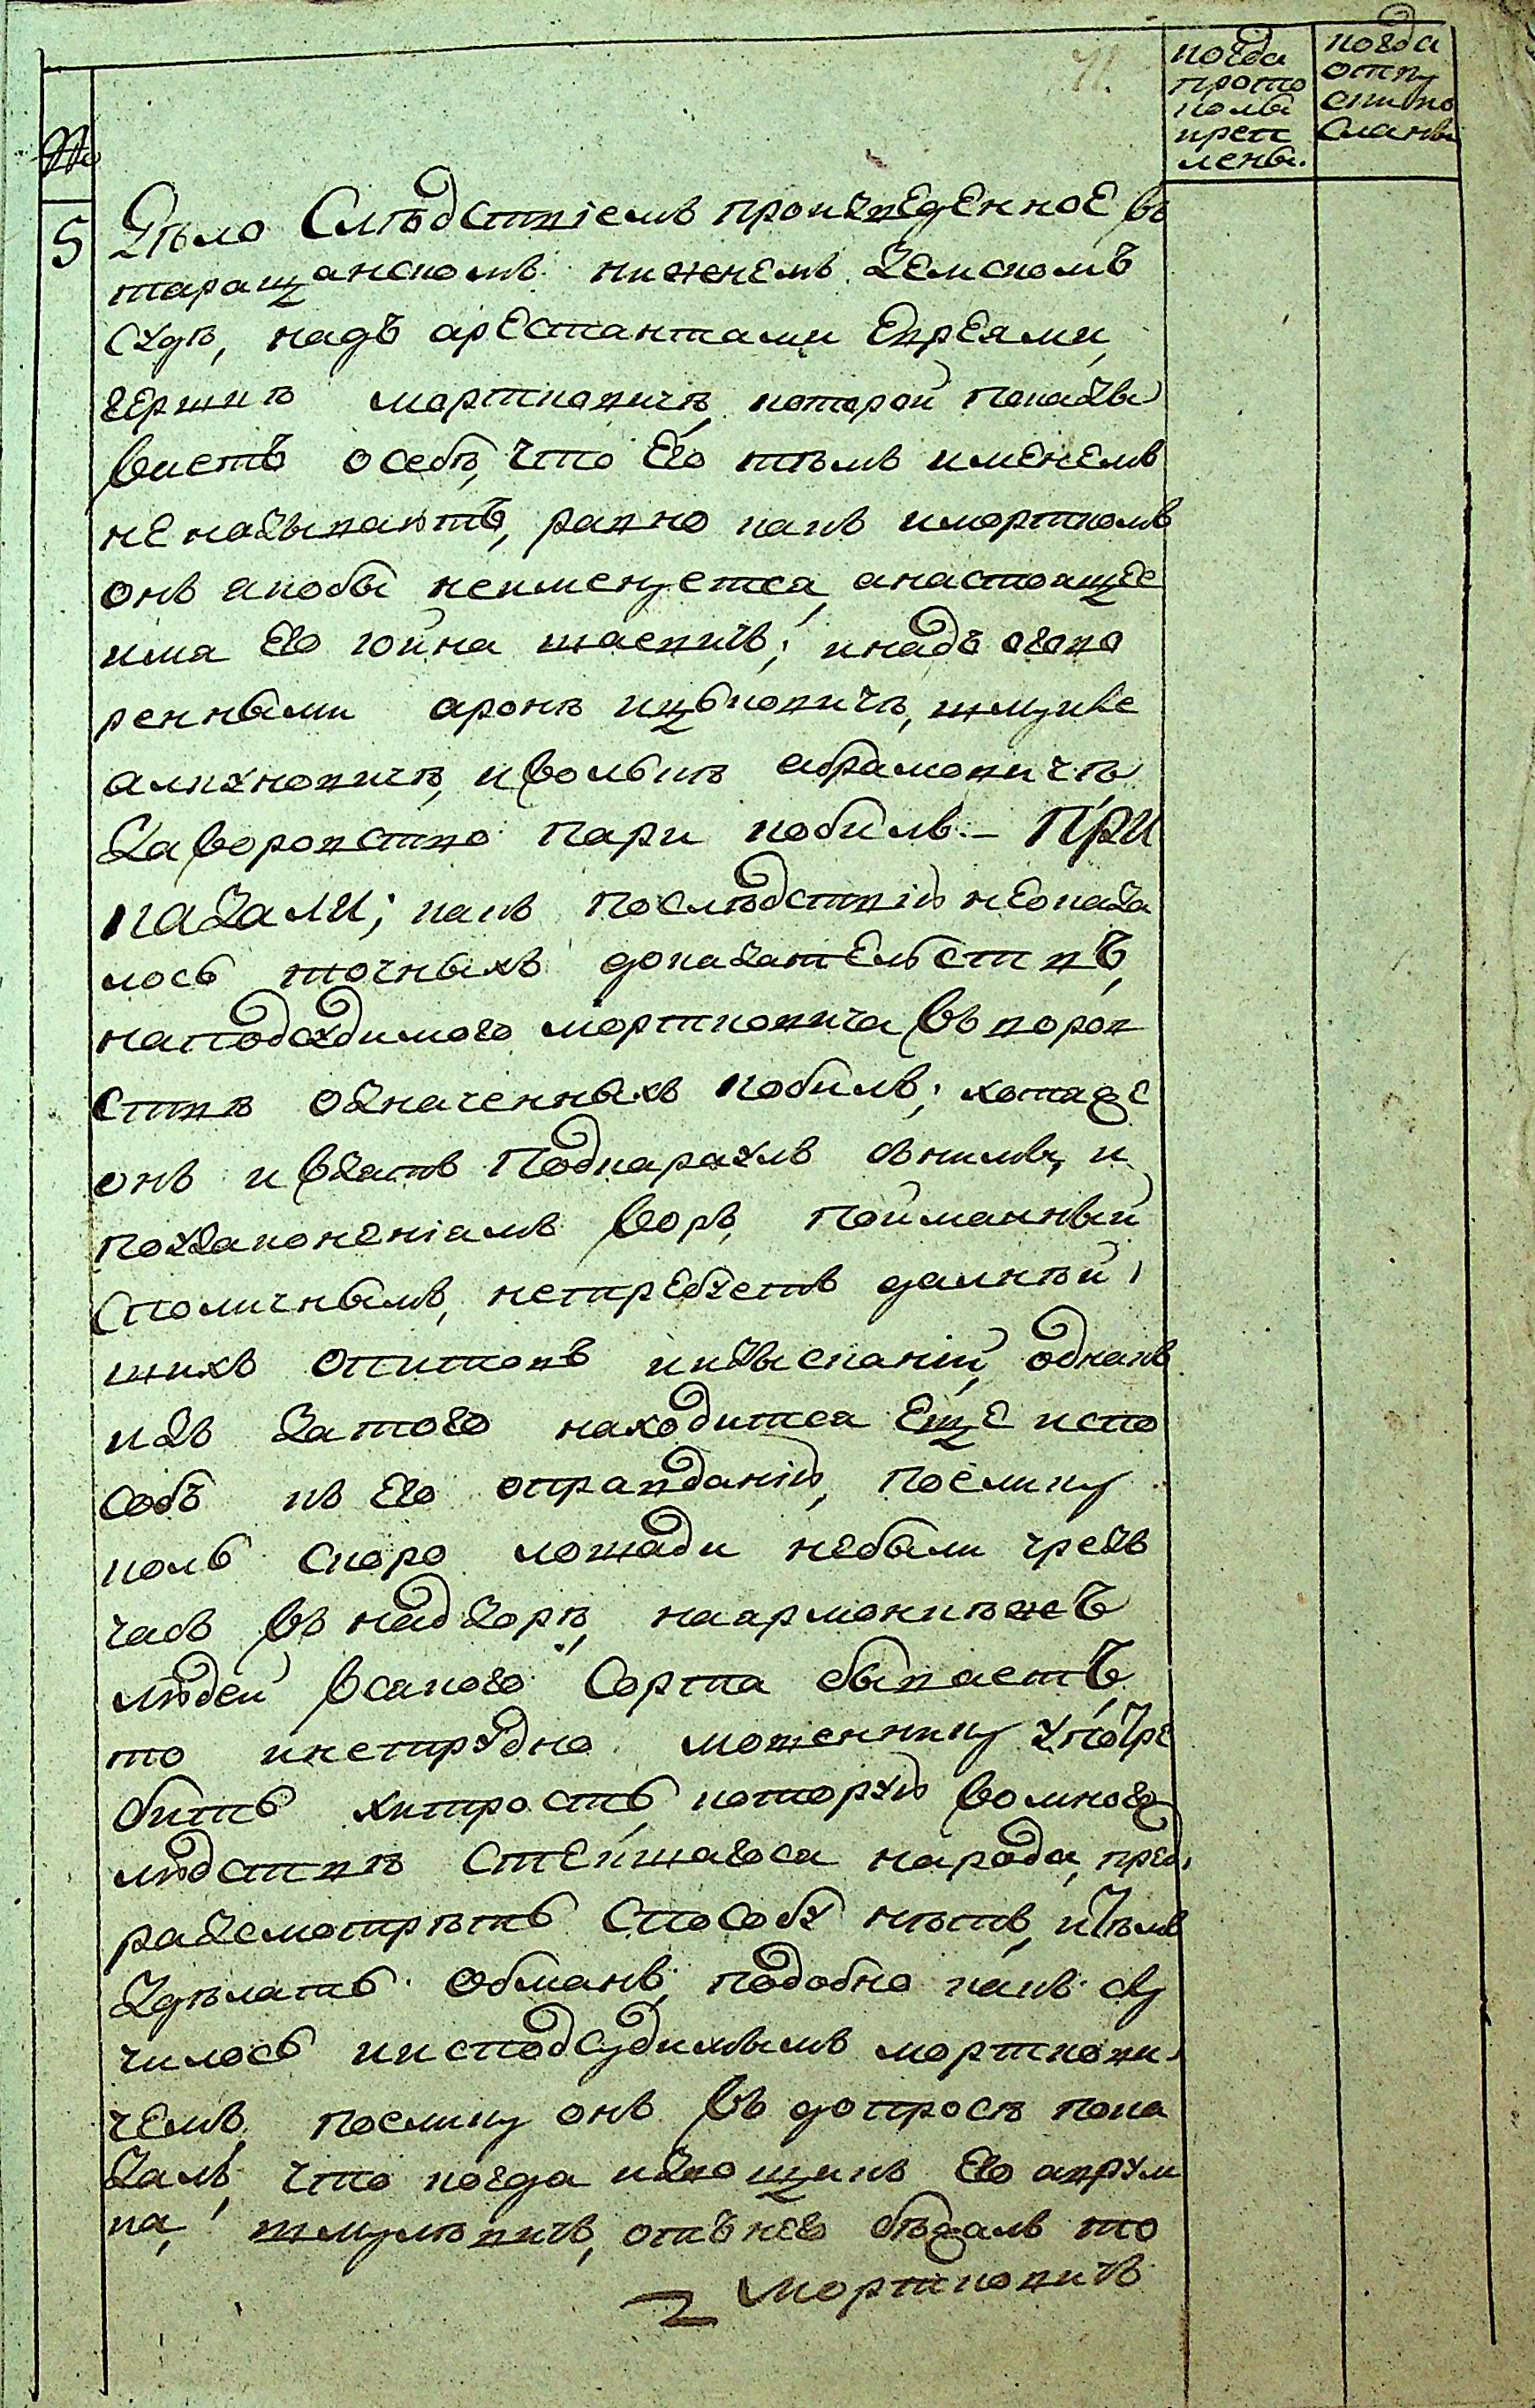 41.
когда
прото
колы
креп
лены.
когда
отпу
скипо
сланы
№
5
Дѣло Слѣдствіемъ произведенное въ
таращанскомъ нижнемъ Земскомъ
судѣ, надъ арестантами Евреями,
гершкѣ мортковичѣ, которой показы
ваетъ осебѣ, что Его тѣмъ именемъ
неназываютъ, равно какъ иморткомъ
онъ якобы неименуется, анастоящее
имя Его юйна шаевичъ; инадъ огово
ренными аронѣ ицковичѣ, шмулѣ
аликновичѣ, иволькѣ абрамовичѣ
Заворовство пари кобилъ. – При
казали; какъ послѣдствію неоказа
лось точныхъ доказательствъ,
наподсудимого мортковича въ воров
ствѣ означенныхъ кобилъ; хотяже
онъ и взятъ подкарауломъ сними, и
поузаконеніямъ воръ, пойманный
споличнымъ, нетребуетъ далнѣй,
шихъ опитовъ иизысканій, однакъ
изъ затого находится Еще испо
собъ къ Его оправданію, поелику
коль скоро лошади небыли чрезъ
часъ въ надзорѣ, наярмонкѣжъ
людей всякого Сорта бываетъ,
то инетрудно мошеннику употре
бить хитрость, которую вомного
людствѣ стекшагося народа, пред,
разсмотрѣть способу нѣтъ, ичѣмъ
Здѣлать обманъ, подобно какъ слу
чилось иисподсудимымъ морткови,
чемъ, поелику онъ въ допросѣ пока
залъ, что когда извощикъ Его аврум
ка, шмулѣвичъ, отънего бѣжалъ то
мортковичъ